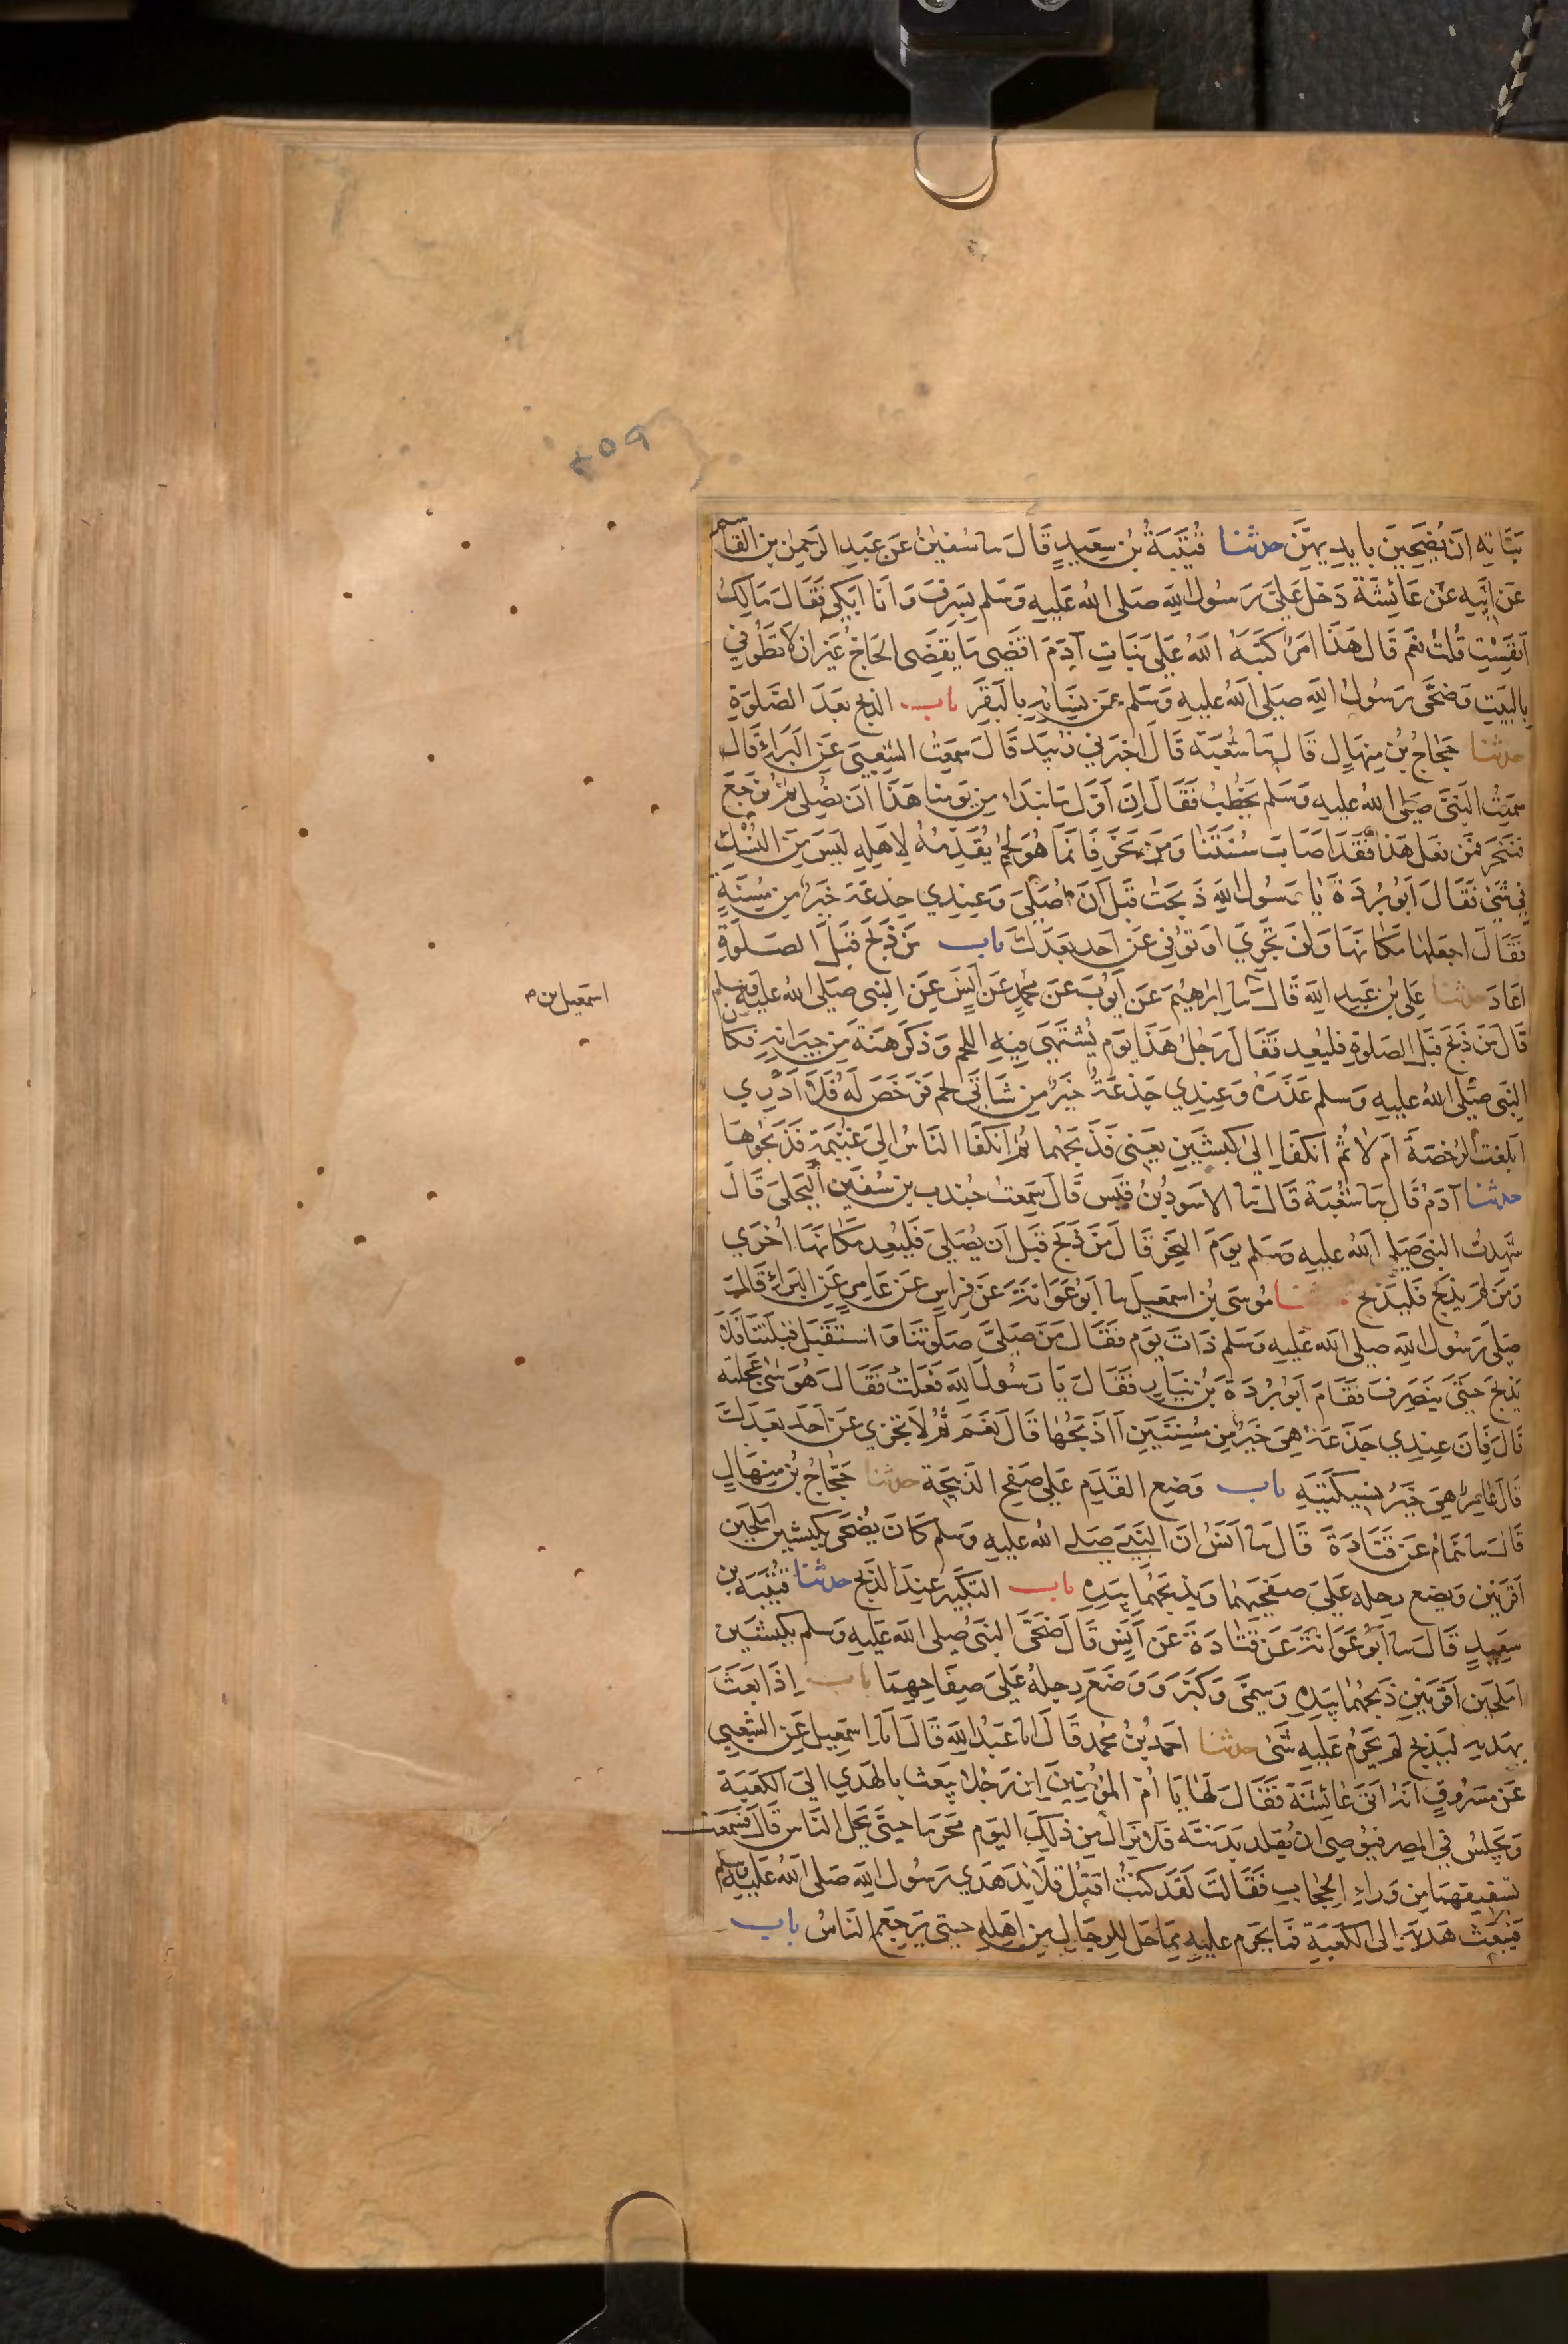 ٤٥٩
بناته ان يضحين بايديهن حدثنا قتيبة بن سعيد قال نا سفين عن عبد الرحمن بن القاسم
عن ابيه عن عائشة دخل علي رسول الله صلى الله عليه وسلم بسرف وانا ابكي فقال مالك
انفست قلت نعم قال هذا امر كتبه الله على بنات آدم اقضي ما يقضى الحاج غير ان لا تطوفي
بالبيت وضحى رسول الله صلى الله عليه وسلم عن نسائه بالبقر باب الذبح بعد الصلوة
حدثنا حجاج بن منهال قال نا شعبة قال اخبرني زبيد قال سمعت الشعبي عن البراء قال
سمعت النبي صلى الله عليه وسلم يخطب فقال ان اول ما نبداء من يومنا هذا ان نصلي ثم نرجع
فننحر فمن فعل هذا فقد اصاب سنتنا ومن نحر فانما هو لحم يقدمه لاهله ليس من النسك
في شئ فقال ابو بردة يا رسول الله ذبحت قبل ان اصلي وعندي جذعة خير من مسنة
فقال اجعلها مكانها ولن تجزي او توفي عن احد بعدك باب من ذبح قبل الصلوة
اعاد حدثنا علي بن عبد الله قال نا ابراهيم عن ايوب عن محمد عن انس عن النبي صلى الله عليه وسلم
اسمعيل بن م
قال من ذبح قبل الصلوة فليعد فقال رجل هذا يوم يشتهى فيه اللحم وذكر هنة من جيرانه فكان
النبي صلى الله عليه وسلم عذره وعندي جذعة خير من شاتي لحم فرخص له فلا ادري
ابلغت الرخصة ام لا ثم انكفا الى كبشين يعني فذبحهما ثم انكفا الناس الى غنيمة فذبحوها
حدثنا آدم قال نا شعبة قال نا الاسود بن قيس قال سمعت جندب بن سفين البجلي قال
شهدت النبي صلى الله عليه وسلم يوم النحر قال من ذبح قبل ان يصلي فليعد مكانها اخرى
ومن لم يذبح فليذبح حدثنا موسى بن اسمعيل نا ابو عوانة عن فراس عن عامر عن البراء قال
صلى رسول الله صلى الله عليه وسلم ذات يوم فقال من صلى صلوتنا واستقبل قبلتنا فلا
يذبح حتى ينصرف فقام ابو بردة بن نيار فقال يا رسول الله فعلت فقال هو شئ عجلته
قال فان عندي جذعة هي خير من مسنتين ااذبحها قال نعم ثم لا تجزي عن احد بعدك
قال عامر هي خير نسيكتيه باب وضع القدم على صفح الذبيحة حدثنا حجاج بن منهال
قال نا همام عن قتادة قال نا انس ان النبي صلى الله عليه وسلم كان يضحى بكبشين املحين
اقرنين ويضع رجله على صفحتهما ويذبحهما بيده باب التكبير عند الذبح حدثنا قتيبة بن
سعيد قال نا ابو عوانة عن قتادة عن انس قال ضحى النبي صلى الله عليه وسلم بكبشين
املحين اقرنين ذبحهما بيده وسمى وكبر ووضع رجله على صفاحهما باب اذا بعث
بهديه ليذبح لم يحرم عليه شئ حدثنا احمد بن محمد قال انا عبد الله قال انا اسمعيل عن الشعبي
عن مسروق انه اتى عائشة فقال لها يا ام المؤمنين ان رجلا يبعث بالهدي الى الكعبة
ويجلس في المصر فيوصي ان تقلد بدنته فلا يزال من ذلك اليوم محرما حتى يحل الناس قال فسمعت
تصفيقهما من وراء الحجاب فقالت لقد كنت افتل قلائد هدي رسول الله صلى الله عليه وسلم
فيبعث هديه الى الكعبة فما يحرم عليه مما حل للرجال من اهله حتى يرجع الناس باب